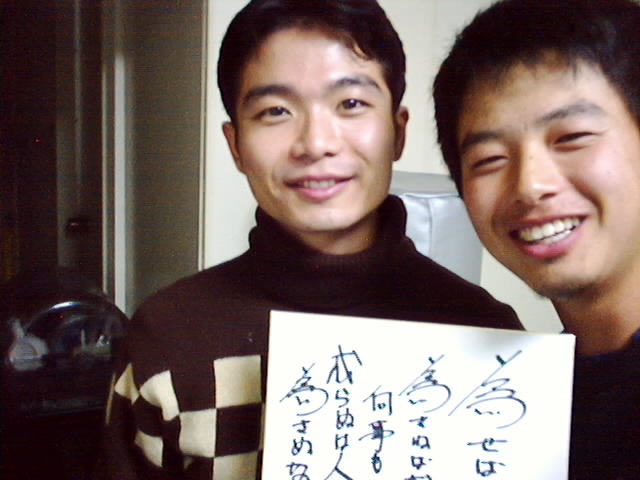 為せば
為さねば
何事も
成らぬは人
為さぬな